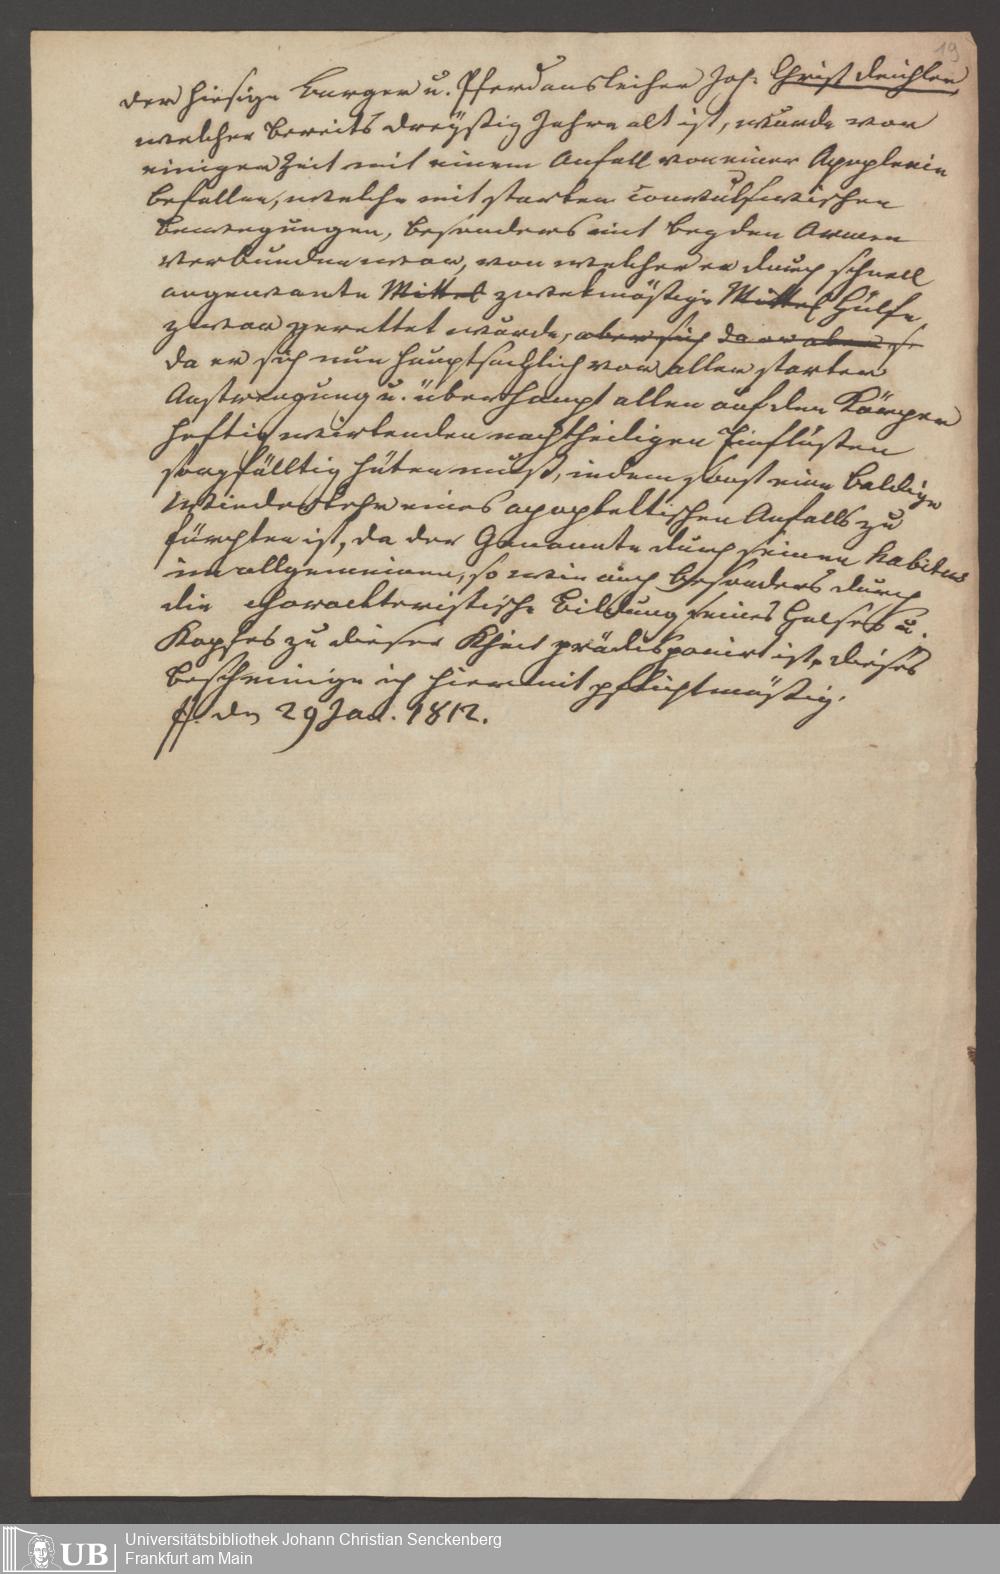 19
der hiesige Burger u. Pferdausleiher Joh. Christ Deichler
welcher bereits dreyßig Jahre alt ist, wurde vor
einiger Zeit mit einem Anfall von einer Apoplexie
befallen, welche mit starken convulsivischen
Bewegungen, besonders mit beyden Armen
verbunden war, von welcher er durch schnell
angewante Mittel zwekmäßige Mittel Hülfe
zwar gerettet wurde, aber sich da er aber
da er sich nun hauptsächlich vor allen starken
Anstrengung u. überhaupt allen auf den Körper
heftig wirkenden nachtheiligen Einflüßen
sorgfälltig hüten muß, indem sonst eine baldige
Wiederkehr eines apoplektischen Anfalls zu
fürchten ist, da der Genannte durch seinen habitus
im allgemeinen, so wie auch besonders durch
die charackteristische Bildung seines Halses u.
Kopfes zu dieser Kheit prädisponirt ist, dieses
bescheinige ich hiermit pflichtmäßig.
ff. den 29 Jan. 1812.
UB
Universitätsbibliothek Johann Christian Senckenberg
Frankfurt am Main